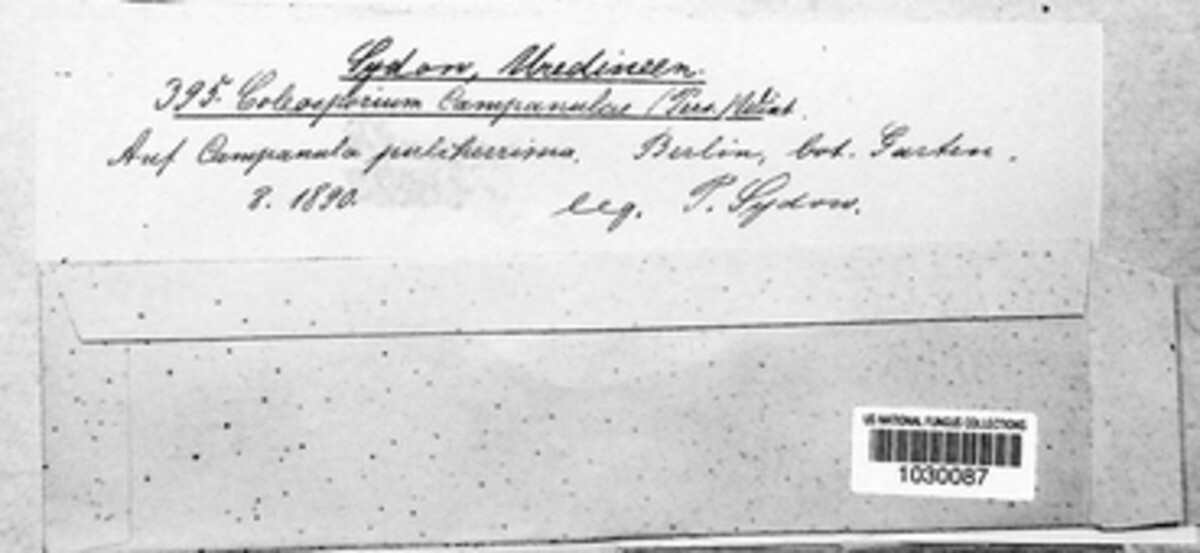 Sydow, Uredineen.
395. Coleosporium Campanulae (Pers.) Wint.
Auf Campanula pulcherrima. Berlin, bot. Garten.
8. 1890. leg. P. Sydow.
US NATIONAL FUNGUS COLLECTIONS
1030087